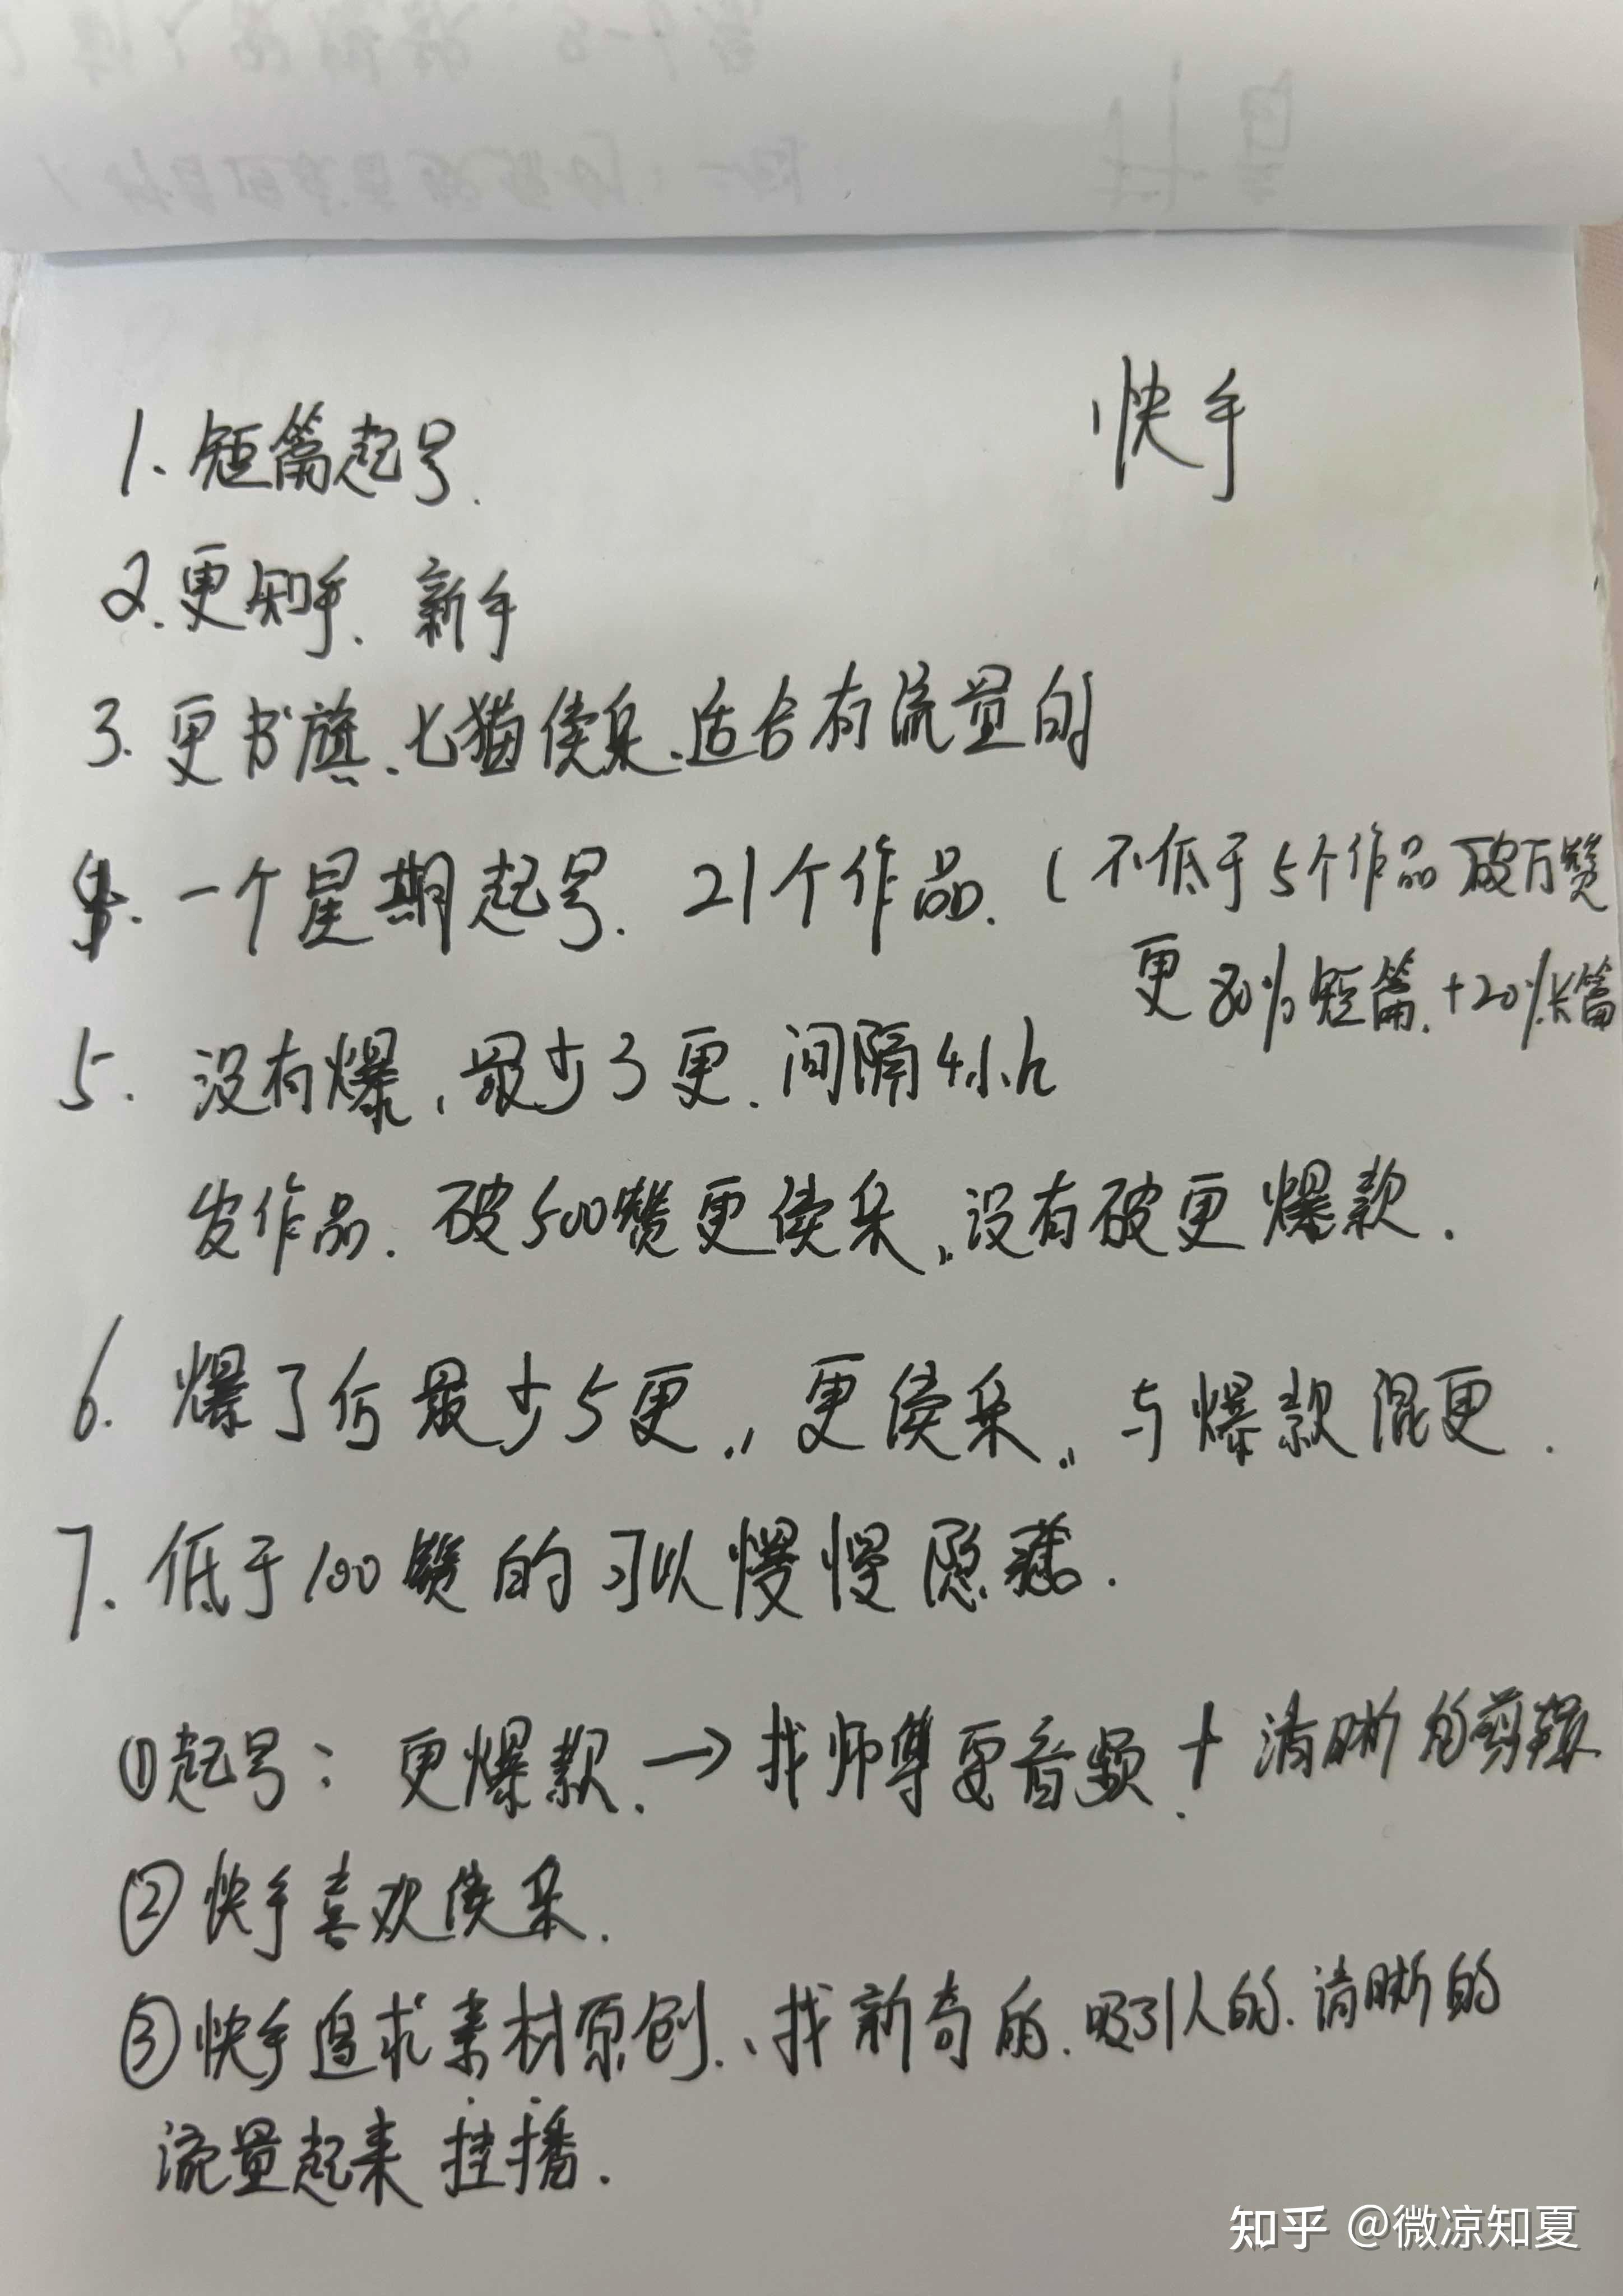 快手
1、短篇起号.
2.更知乎、新手
3.更书旗、七猫续集、适合有流量的
4.一个星期起号. 21个作品.(不低于5个作品破万赞
更80%短篇.+20%长篇
5. 没有爆,最少3更.间隔4小h
发作品.破500赞更续集,没有破更爆款.
6.爆了后最少5更,更续集,与爆款混更.
7.低于100赞的可以慢慢隐藏.
①起号:更爆款.→找师尊要音频.+清晰的剪辑
②快手喜欢续集.
③快手追求素材原创、找新奇的.吸引人的.清晰的
流量起来 挂播.
知乎 @微凉知夏